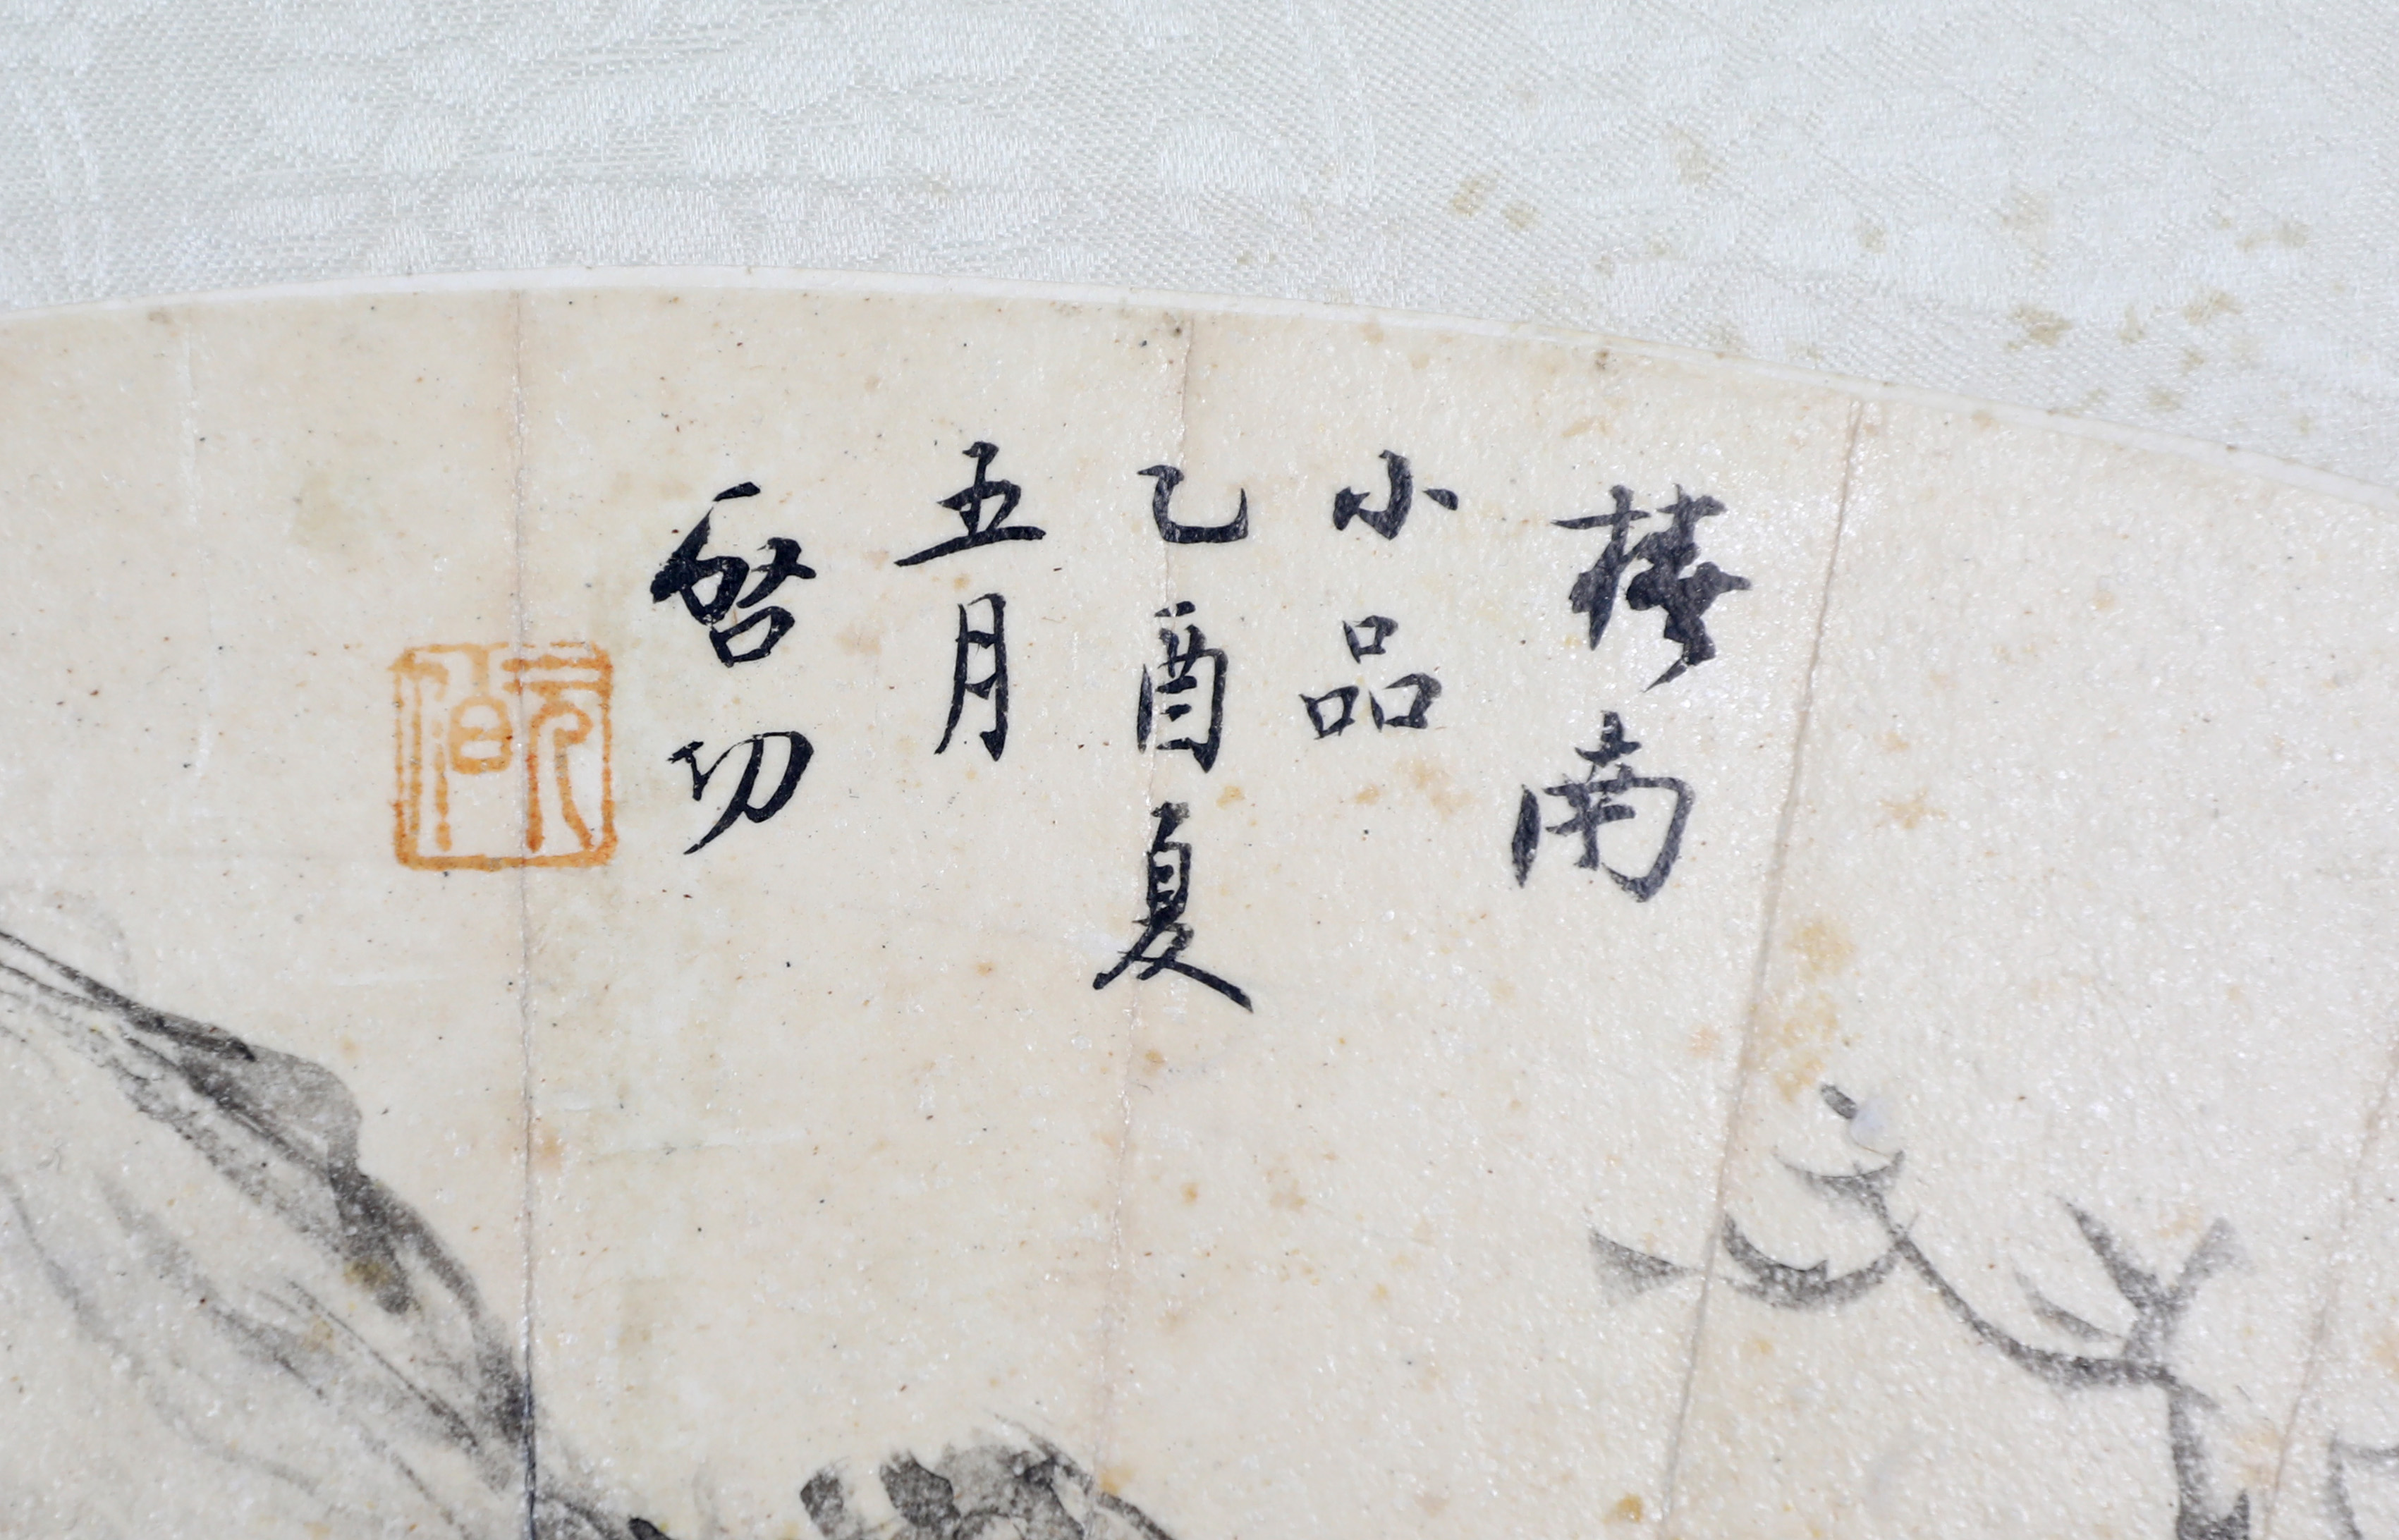 南
小品
乙酉夏
五月
啓功
元伯